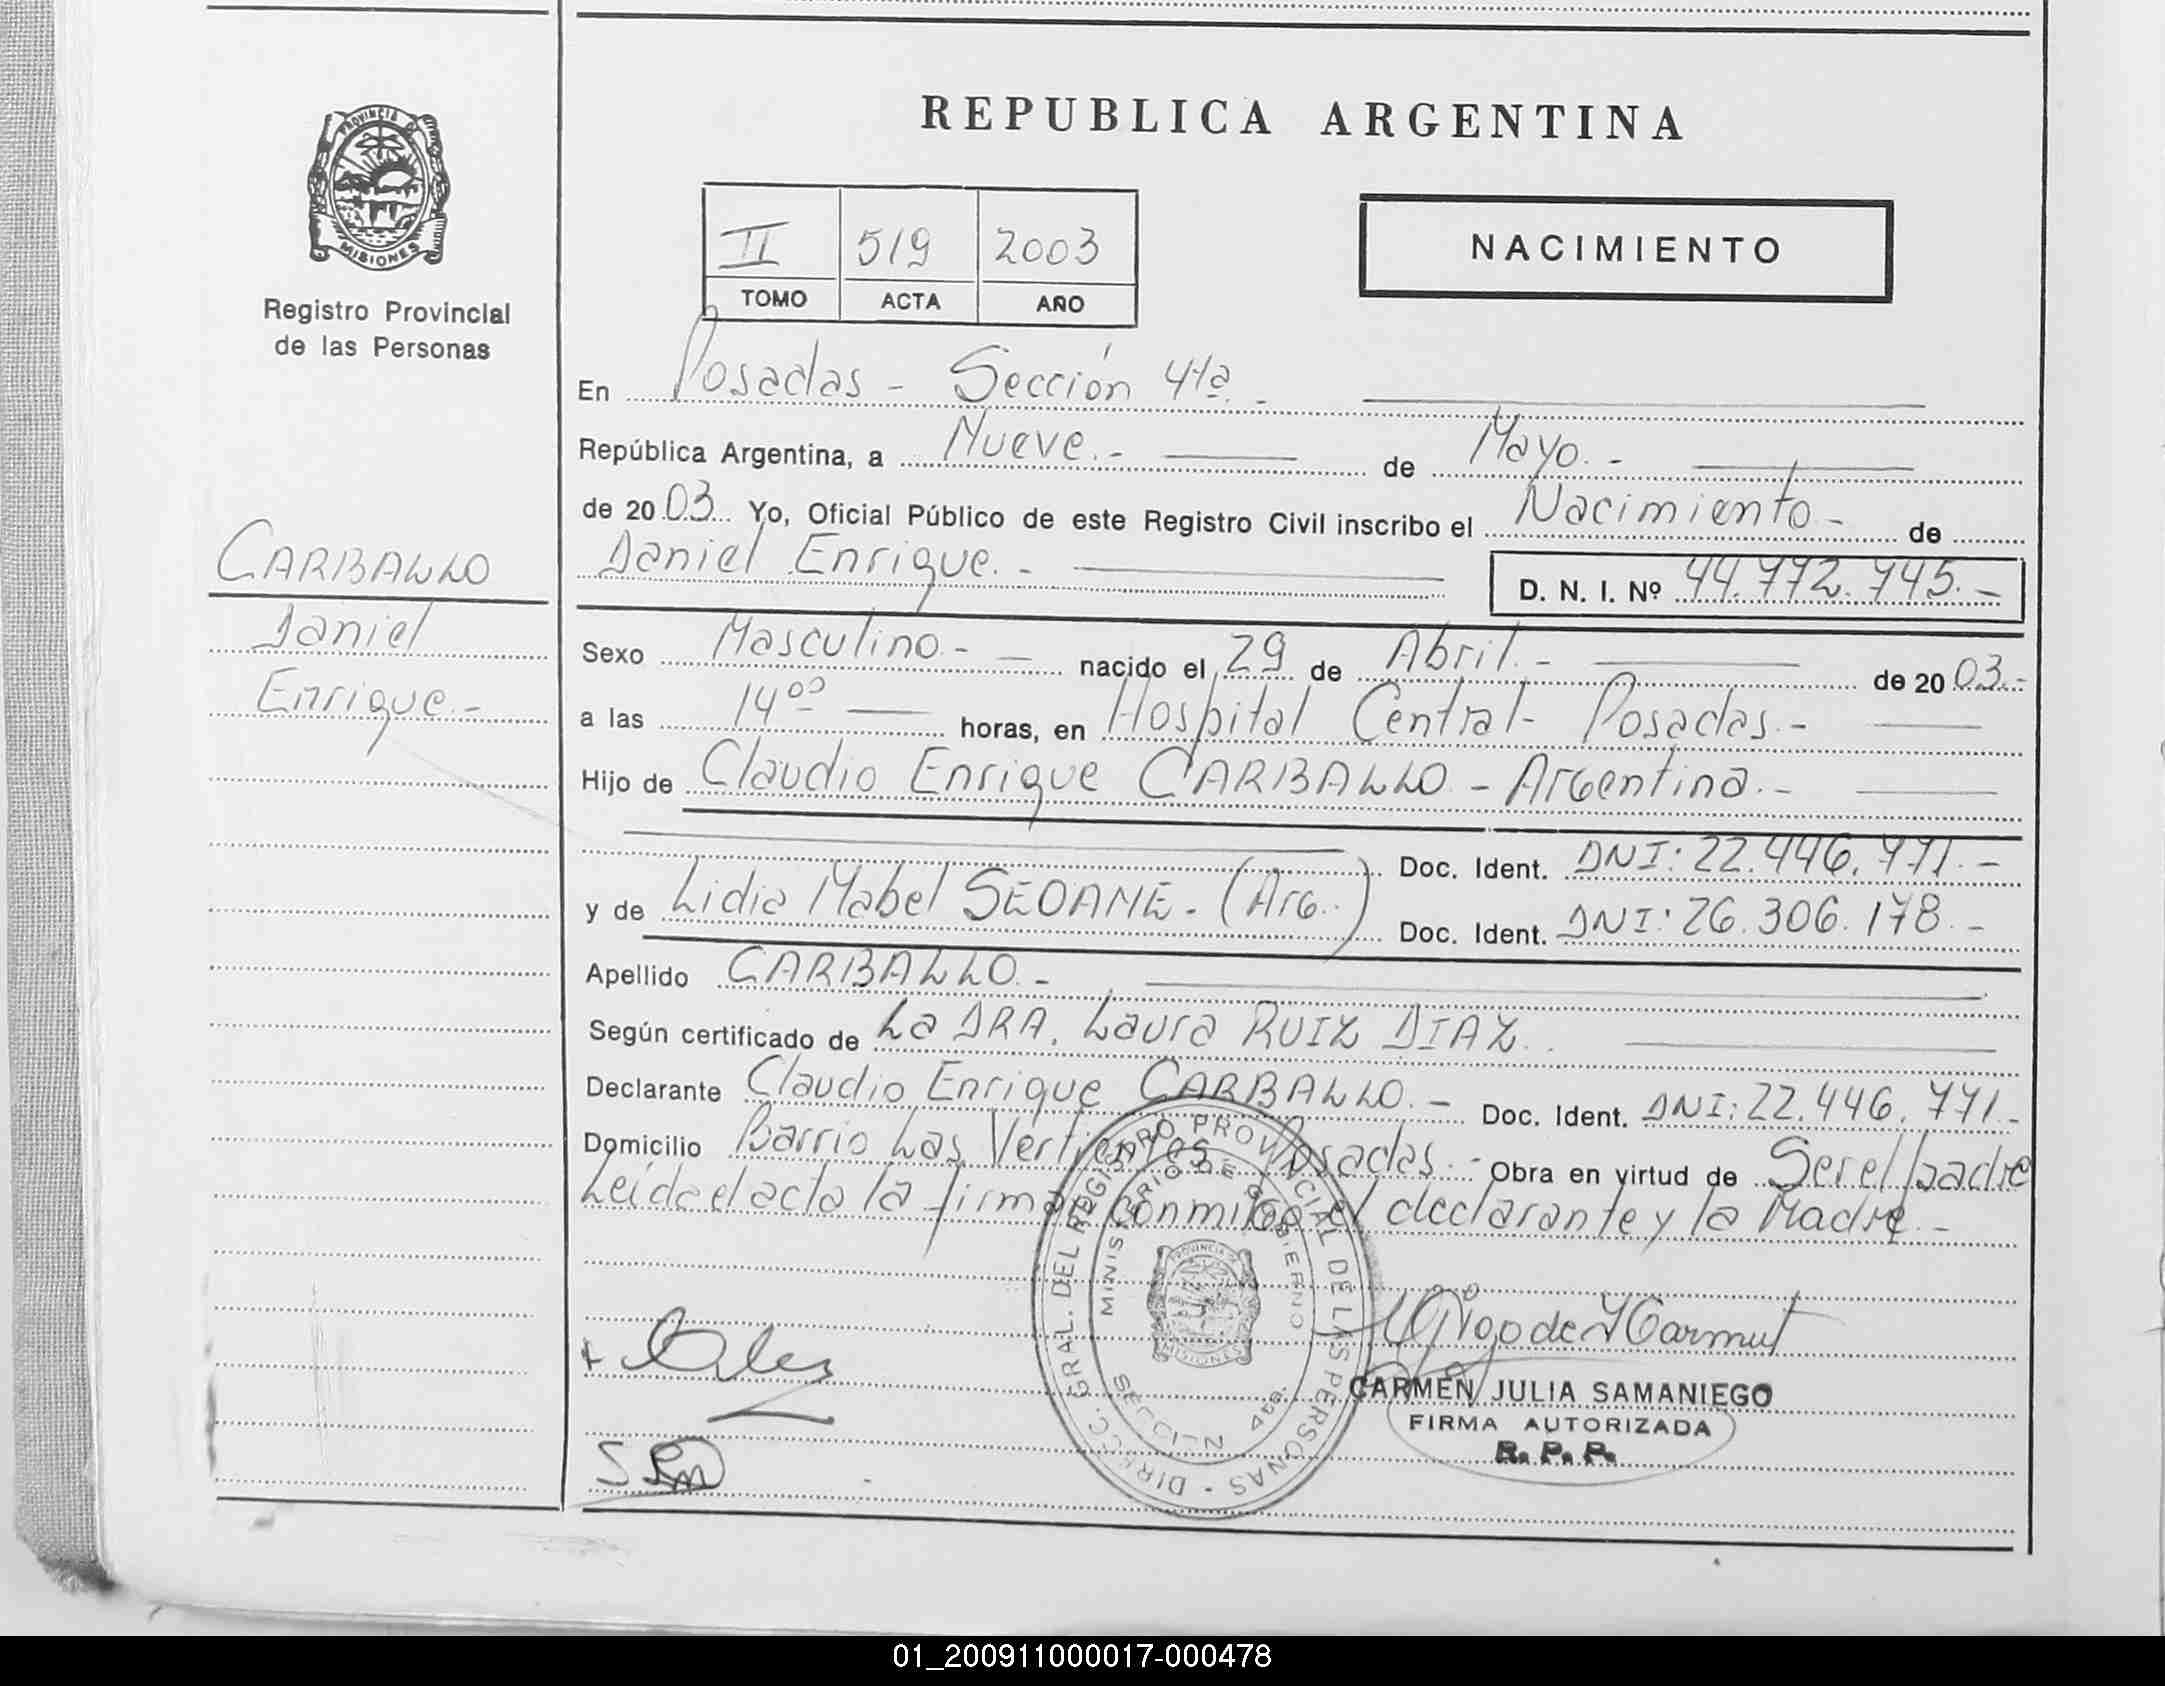 REPUBLICA ARGENTINA
PROVINCIA DE
MISIONES
Registro Provincial
de las Personas
II 519 2003
TOMO ACTA AÑO
NACIMIENTO
En Posadas - Sección 4ta. -
República Argentina, a Nueve. - de Mayo. -
de 2003 Yo, Oficial Público de este Registro Civil inscribo el Nacimiento - de
Daniel Enrique. - D. N. I. Nº 44.772.745. -
CARBALLO
Daniel
Enrique. -
Sexo Masculino. - nacido el 29 de Abril. - de 2003. -
a las 14⁰⁰ horas, en Hospital Central - Posadas. -
Hijo de Claudio Enrique CARBALLO - Argentina. -
Doc. Ident. DNI: 22.446.771. -
y de Lidia Mabel SEOANE. (Arg.) Doc. Ident. DNI: 26.306.178. -
Apellido CARBALLO. -
Según certificado de La DRA. Laura RUIZ DIAZ.
Declarante Claudio Enrique CARBALLO. - Doc. Ident. DNI: 22.446.771. -
Domicilio Barrio Las Vertientes Posadas. - Obra en virtud de Ser el padre
Leida el acta la firman conmigo el declarante y la Madre. -
DIRECC. GRAL. DEL REGISTRO PROVINCIAL DE LAS PERSONAS
MINISTERIO DE GOBIERNO
PROVINCIA DE
MISIONES
SECCION 4ta.
CARMEN JULIA SAMANIEGO
FIRMA AUTORIZADA
R. P. P.
01_200911000017-000478